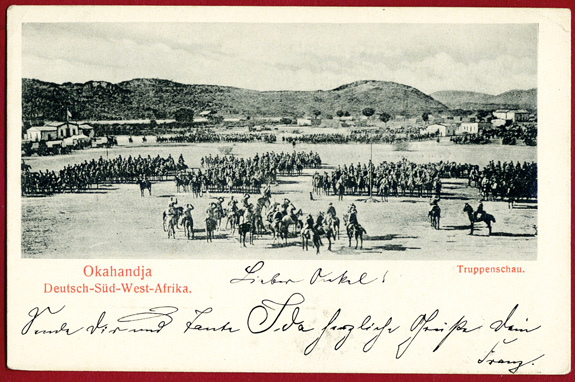 Okahandja
Deutsch-Süd-West-Afrika.
Truppenschau.
Lieber Onkel!
Sende dir und Tante Ida herzliche Grüße dein
Franz.